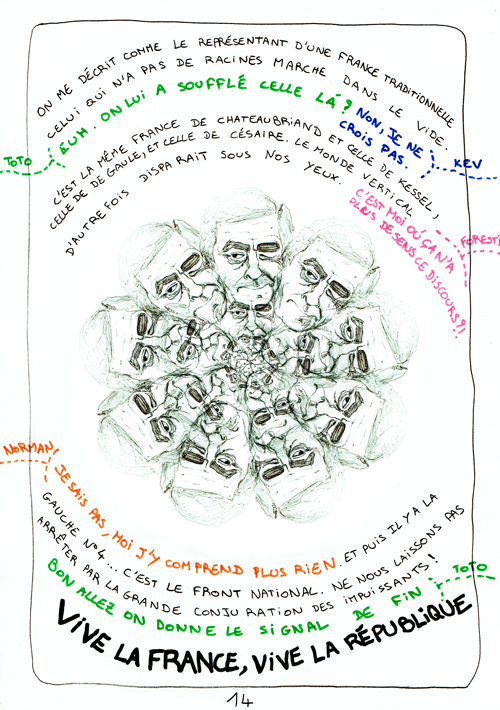 ON ME DÉCRIT COMME LE REPRÉSENTANT D'UNE FRANCE TRADITIONNELLE
CELUI QUI N'A PAS DE RACINES MARCHE DANS LE VIDE.
TOTO
EUH. ON LUI A SOUFFLÉ CELLE LÀ ?
NON, JE NE
CROIS PAS.
KEV
C'EST LA MÊME FRANCE DE CHATEAUBRIAND ET CELLE DE KESSEL,
CELLE DE DE GAULE, ET CELLE DE CÉSAIRE. LE MONDE VERTICAL
D'AUTRE FOIS DISPARAIT SOUS NOS YEUX.
C'EST MOI OÙ ÇA N'A
PLUS DE SENS CE DISCOURS ?!
FORESTI
NORMAN
JE SAIS PAS, MOI J'Y COMPREND PLUS RIEN. ET PUIS IL Y A LA
GAUCHE N°4... C'EST LE FRONT NATIONAL. NE NOUS LAISSONS PAS
ARRÊTER PAR LA GRANDE CONJURATION DES IMPUISSANTS !
BON ALLEZ ON DONNE LE SIGNAL DE FIN
TOTO
VIVE LA FRANCE, VIVE LA RÉPUBLIQUE
14